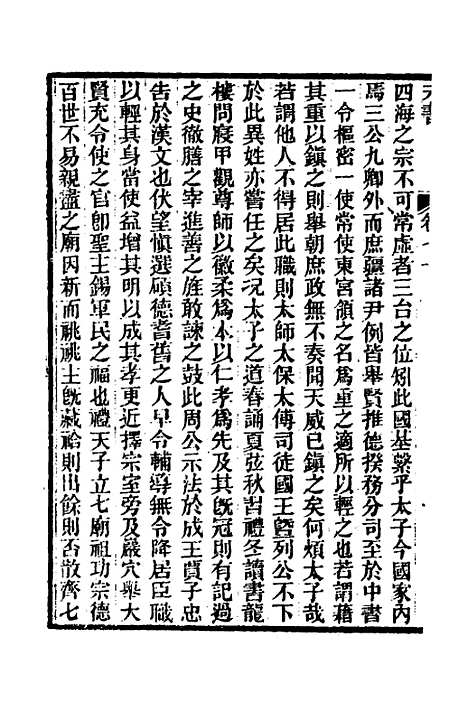 元書 卷七十
四海之宗不可常虛者三台之位矧此國基繫乎太子今國家內
焉三公九卿外而庶疆諸尹例皆舉賢推德揆務分司至於中書
一令樞密一使常使東宮領之名爲重之適所以輕之也若謂藉
其重以鎮之則舉朝庶政無不奏聞天威已鎮之矣何煩太子哉
若謂他人不得居此職則太師太保太傅司徒國王曁列公不下
於此異姓亦嘗任之矣况太子之道春誦夏弦秋習禮冬讀書龍
樓問寢甲觀尊師以徽柔爲本以仁孝爲先及其旣冠則有記過
之史徹膳之宰進善之旌敢諫之鼓此周公示法於成王賈子忠
吿於漢文也伏望愼選碩德耆舊之人早令輔導無令降居臣職
以輕其身當使益增其明以成其孝更近擇宗室旁及巖穴舉大
賢充令使之官卽聖主錫軍民之福也禮天子立七廟祖功宗德
百世不易親盡之廟因新而祧祧主旣藏祫則出餘則否散齊七